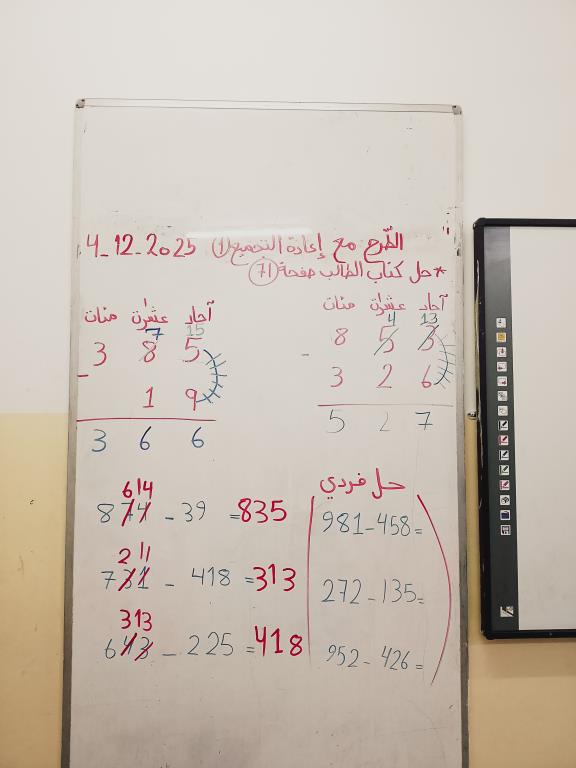 الطّرح مع إعادة التجميع (1) 4-12-2025
*حل كتاب الطالب صفحة (71)
آحاد عشرات مئات
13 4
8 5 3
-
3 2 6
5 2 7
آحاد عشرات مئات
7 15
3 8 5
-
1 9
3 6 6
6 14
874 - 39 = 835
2 11
731 - 418 = 313
3 13
643 - 225 = 418
حل فردي
981 - 458 =
272 - 135 =
952 - 426 =